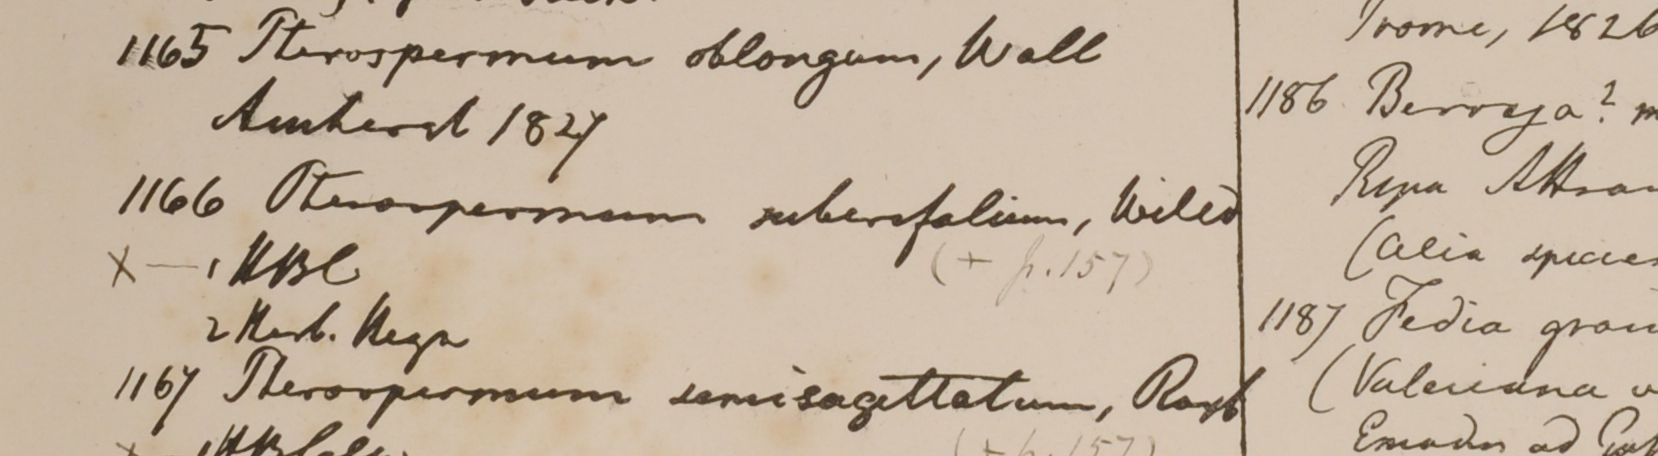 1165 Pterospermum oblongum, Wall
Amherst 1827
1166 Pterospermum suberifolium, Willd
X — 1 HBC
(+ p. 157)
2 Herb. Heyn
1167 Pterospermum semisagittatum, Roxb
(+ p. 157)
Prome, 1826
1186 Berrya?
Ripa Attran
(alia species
1187 Fedia
(Valeriana
ad